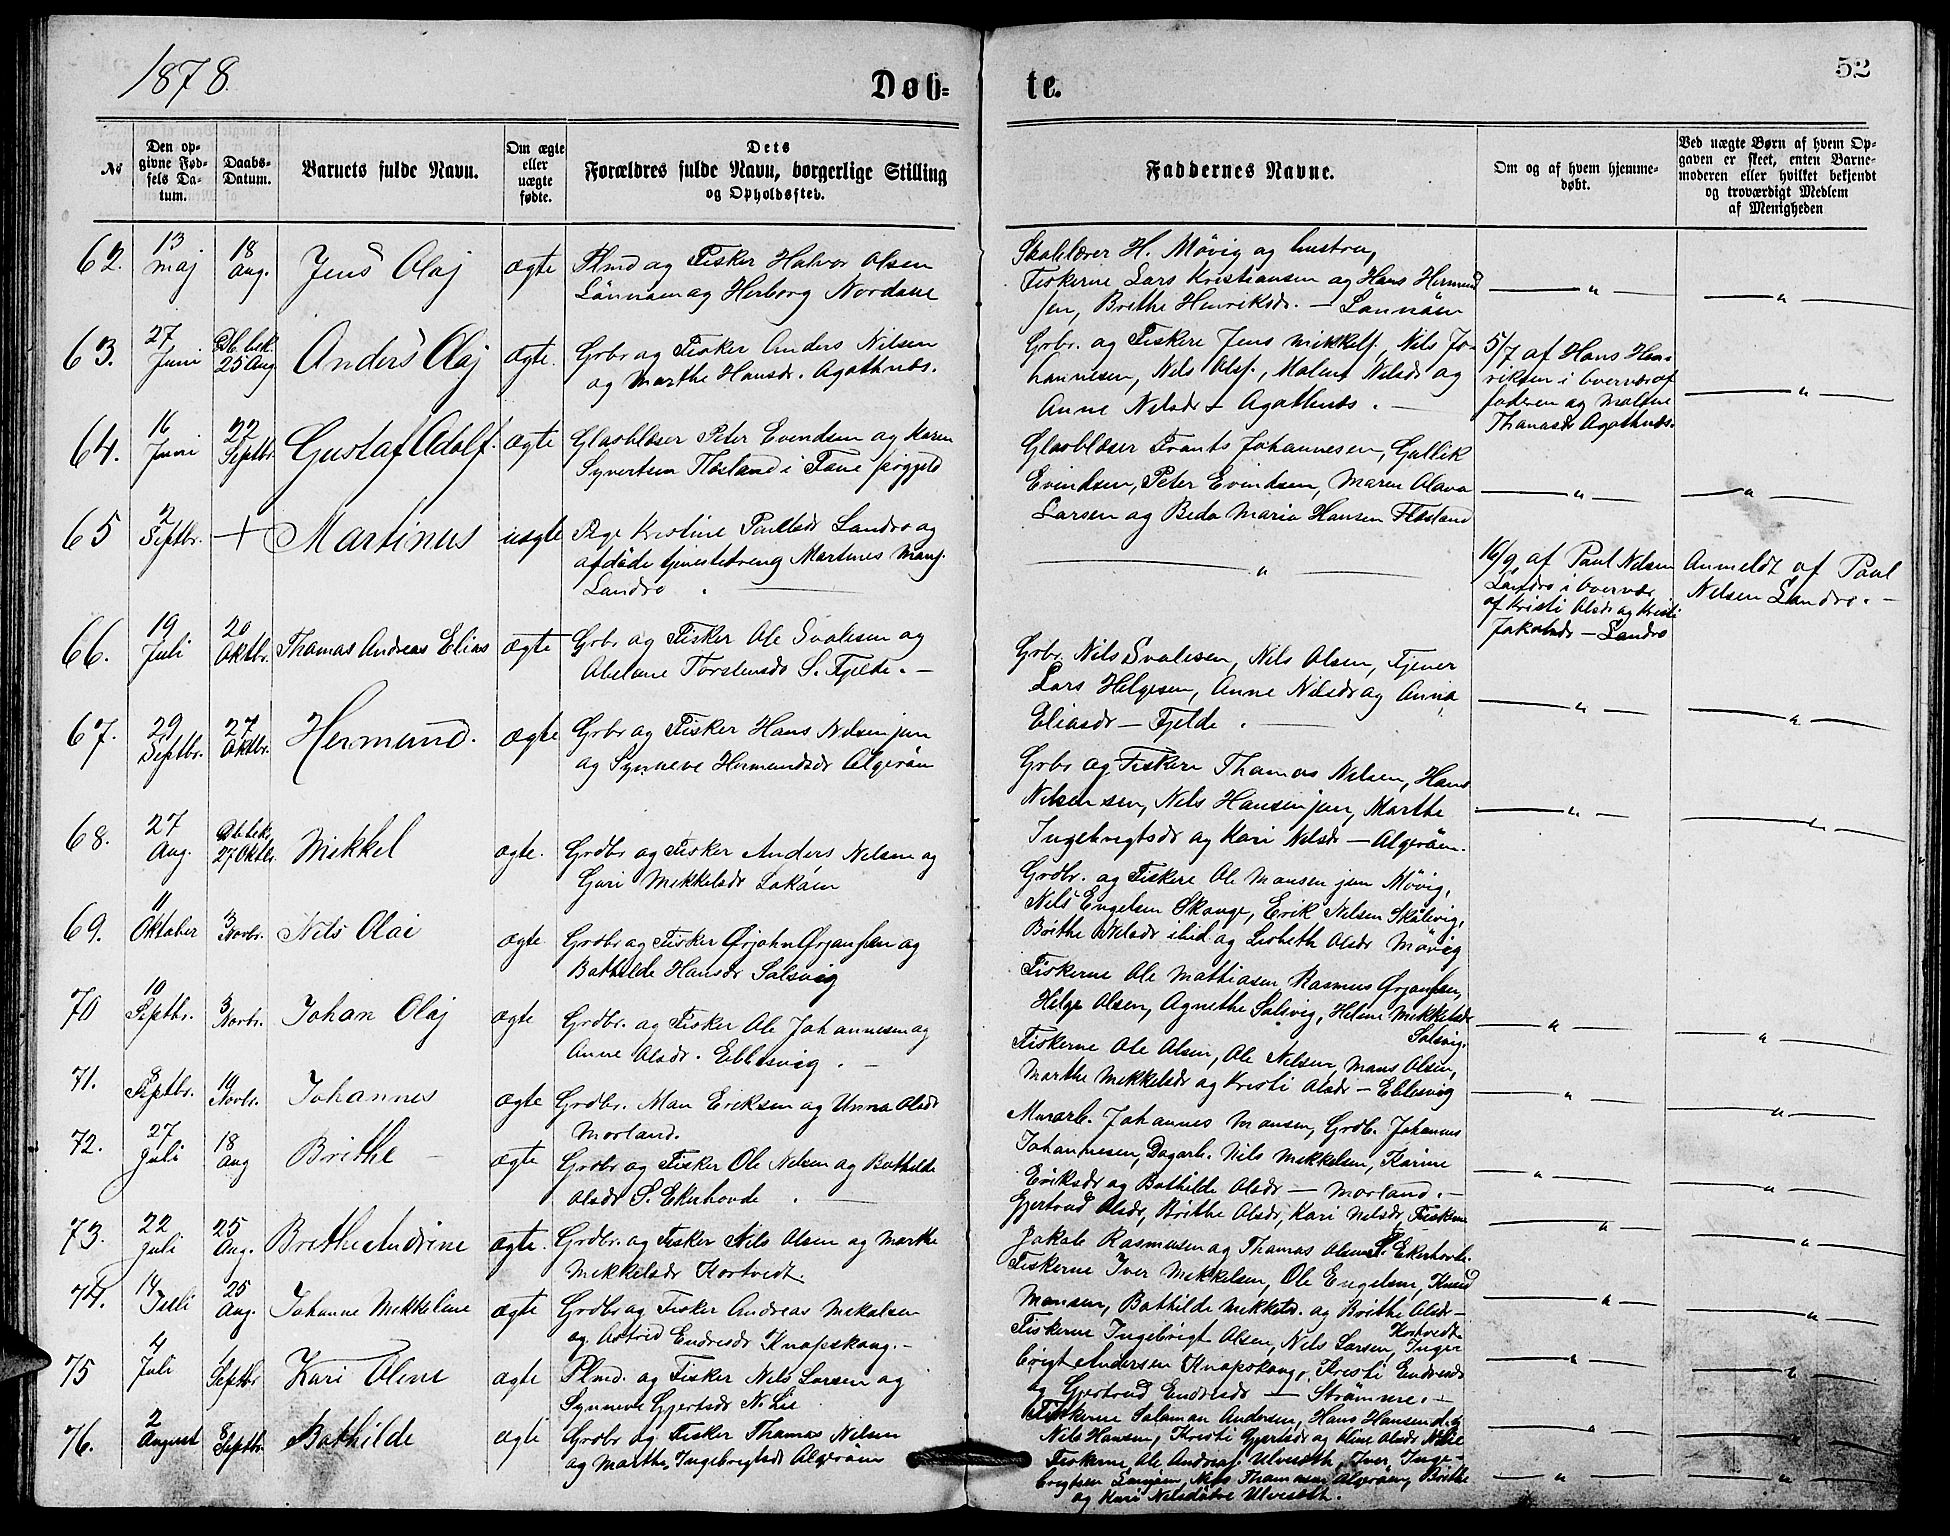 1878.
Døb=
te.
52
No
Den op-
givne Fød-
sels Da-
tum.
Daabs-
Datum.
Barnets fulde Navn.
Om ægte
eller
uægte
fødte.
Dets
Forældres fulde Navn, borgerlige Stilling
og Opholdssted.
Faddernes Navne.
Om og af hvem hjemme-
døbt.
Ved uægte Børn af hvem Op-
gaven er skeet, enten Barne-
moderen eller hvilket bekjendt
og troværdigt Medlem
af Menigheden
62. 13 Maj 18 Aug. Jens Olaj ægte
Plmd og Fisker Halvor Olsen
Lönnöen og Herborg Nordane
Skolelærer H. Mövig og hustru,
Fiskerne Lars Kristiansen og Hans Hermund
sen, Brithe Henriksdr. — Lönnöen
63. 27 Juni 25 Aug Anders Olaj ægte.
Grbr og Fisker Anders Nilsen
og Marthe Hansdr. Agothnæs.
Grbr. og Fiskere Jens Mikkels., Nils Jo-
hannesen, Nils Ols., Malene Nilsdr og
Anne Nilsdr — Agothnæs. —
5/7 af Hans Hen-
riksen i Overvær af
faderen og Malene
Thomasdr Agothnæs.
64. 16 Juni 22 Septbr. Gustaf Adolf. ægte
Glasblæser Peter Evendsen og Karen
Syvertsen Flæsland i Fane prgjeld
Glasblæser Frants Johannesen, Gullik
Evindsen, Peter Evindsen, Maren Olava
Larsen og Beda Maria Hansen Flæsland
65 2 Septbr. + Martinus uægte
Pige Kristine Paulsdr Landro og
afdöde tjenestedreng Martines Mons.
Landro .
16/9 af Paul Nilsen
Landro i Overvær
af Kristi Olsdr og Kristi
Jakobsdr — Landro
Anmeldt af Paul
Nilsen Landro. —
66. 19 Juli 20 Oktbr. Thomas Andreas Elias ægte
Grbr og Fisker Ole Svalesen og
Abelone Torstensdr S. Fjelde. —
Grbr. Nils Svalesen, Nils Olsen, Tjener
Lars Helgesen, Anne Nilsdr og Anna
Eliasdr — Fjelde .
67. 29 Septbr. 27 Oktbr. Hermund. ægte
Grbr og Fisker Hans Nilsen jun
og Synneve Hermundsdr Algeröen
Grbr og Fiskere Thomas Nilsen, Hans
Nilsen sen, Nils Hansen jun, Marthe
Ingebrigtsdr og Kari Nilsdr — Algeröen.
68. 27 Aug. 27 Oktbr. Mikkel ægte.
Grdbr og Fisker Anders Nilsen og
Guri Mikkelsdr Loköen
Grdbr. og Fiskere Ole Monsen jun Mövig,
Nils Engelsen Skoge, Erik Nilsen Skålevig,
Brithe Nilsdr ibid og Lisbeth Olsdr Mövig
69. 11 Oktober 3 Novbr. Nils Olai ægte
Grdbr og Fisker Ørjohn Ørjansen og
Bathilde Hansdr Solsvig
Fiskerne Ole Mathiasen Rasmus Ørjansen,
Helge Olsen, Agnethe Solsvig, Helene Mikkelsdr
Solsvig.
70 10 Septbr. 3 Novbr. Johan Olaj ægte
Grdbr. og Fisker Ole Johannesen og
Anne Olsdr. Ebbesvig . —
Fiskerne Ole Olsen, Ole Nilsen, Mons Olsen,
Marthe Mikkelsdr og Kristi Olsdr — Ebbesvig
71. 8 Septbr. 10 Novbr. Johannes ægte
Grdbr. Mon Eriksen og Unna Olsdr
Morland.
Murarb. Johannes Monsen, Grdb. Johannes
Johannesen, Dagarb. Nils Mikkelsen, Karine
Eriksdr og Bathilde Olsdr — Morland. —
72. 27 Juli 18 Aug Brithe — ægte
Grdbr og Fisker Ole Nilsen og Bathilde
Olsdr S. Ekerhovde .
Gjertrud Olsdr, Brithe Olsdr, Kari Nilsdr, Fiskerne
Jakob Rasmussen og Thomas Olsen S. Ekerhovde.
73. 22 Juli 25 Aug. Brithe Andrine ægte.
Grdbr. og Fisker Nils Olsen og Marthe
Mikkelsdr Kortvedt.
Fiskerne Iver Mikkelsen, Ole Engelsen, Knud
Monsen, Bathilde Mikkelsd. og Brithe Olsdr —
Kortvedt
74. 14 Juli 25 Aug. Johanne Mikkeline ægte
Grdbr og Fisker Andreas Mikalsen
og Astrid Endresdr Knapskoug. —
Fiskerne Ingebrigt Olsen, Nils Larsen, Inge-
brigt Andersen Knapskoug, Kristi Endresdr
og Gjertrud Endresdr — Strömme. —
75 4 Juli 1 Septbr Kari Oline ægte
Plmd. og Fisker Nils Larsen og
Synneve Gjertsdr N. Lie
Fiskerne Salamon Andersen, Hans Hansen
Nils Hansen, Kristi Gjertsdr og Oline Olsdr N. Lie
76. 2 August 8 Septbr. Bathilde ægte
Grdbr og Fisker Thomas Nilsen
og Marthe Ingebrigtsdr Algeröen
Fiskerne Ole Anders. Ulvesæth, Iver Inge-
brigtsen Långöen, Nils Thommesen Algeröen, Brithe
og Kari Nilsdöttre Ulvesæth.